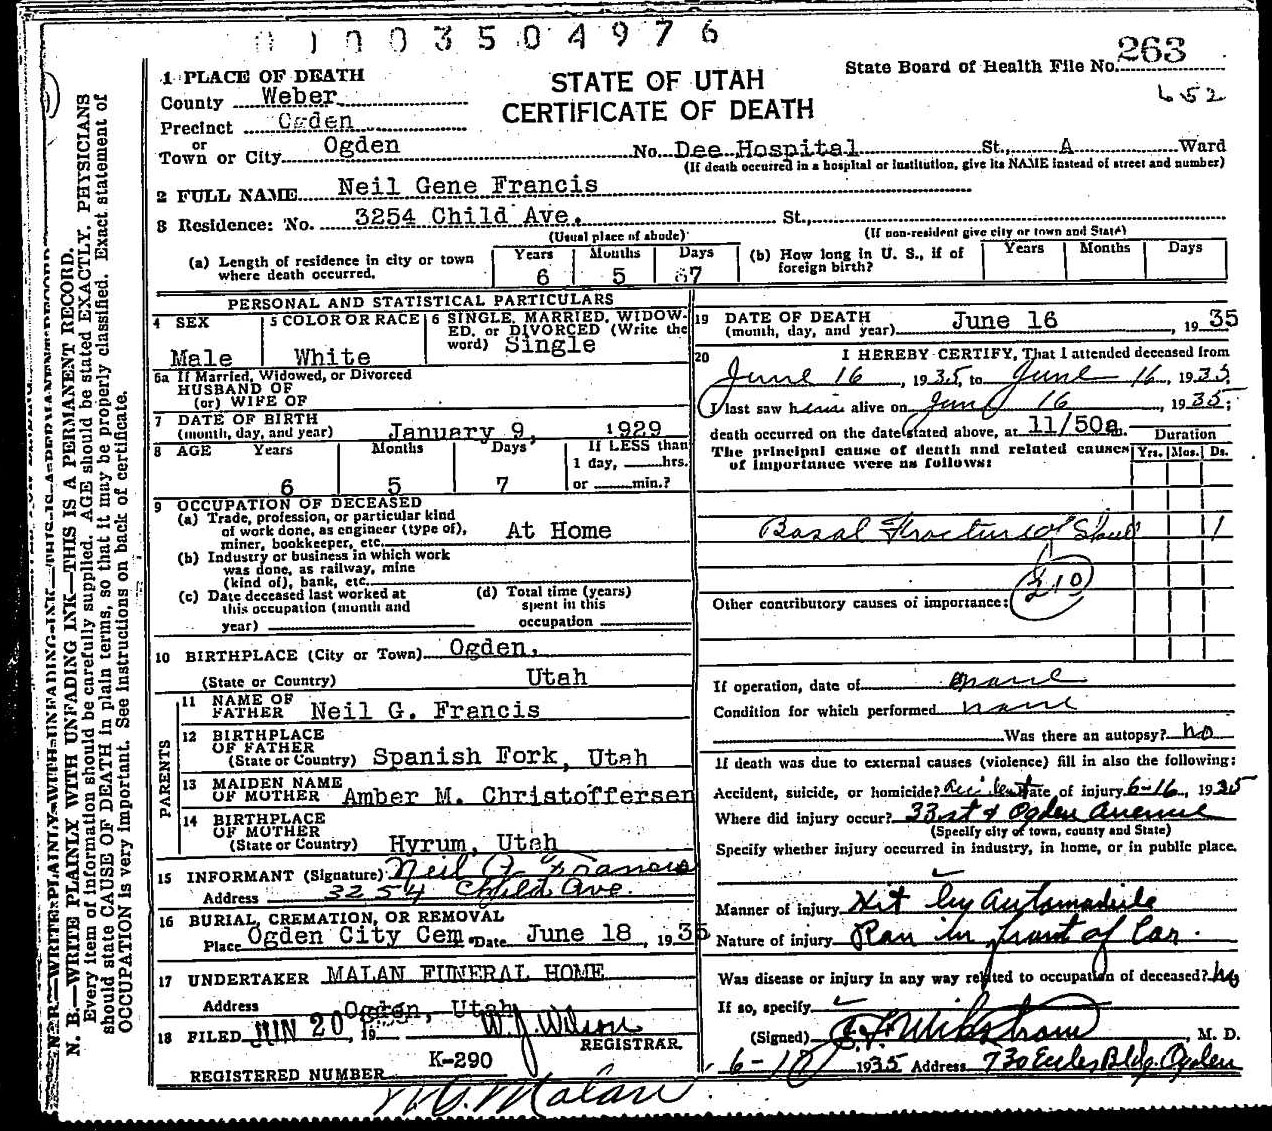 0 1 0 0 3 5 0 4 9 7 6
263
State Board of Health File No.
652
STATE OF UTAH
CERTIFICATE OF DEATH
1 PLACE OF DEATH
County Weber
Precinct Ogden
or
Town or City Ogden No. Dee Hospital St., A Ward
(If death occurred in a hospital or institution, give its NAME instead of street and number)
2 FULL NAME Neil Gene Francis
3 Residence: No. 3254 Child Ave. St.,
(Usual place of abode) (If non-resident give city or town and State)
(a) Length of residence in city or town where death occurred. Years 6 Months 5 Days 7
(b) How long in U. S., if of foreign birth? Years Months Days
PERSONAL AND STATISTICAL PARTICULARS
4 SEX Male
5 COLOR OR RACE White
6 SINGLE, MARRIED, WIDOWED, or DIVORCED (Write the word) Single
6a If Married, Widowed, or Divorced
HUSBAND OF
(or) WIFE OF
7 DATE OF BIRTH
(month, day, and year) January 9, 1929
8 AGE Years Months Days If LESS than
1 day, hrs.
6 5 7 or min.?
9 OCCUPATION OF DECEASED
(a) Trade, profession, or particular kind
of work done, as engineer (type of),
miner, bookkeeper, etc. At Home
(b) Industry or business in which work
was done, as railway, mine
(kind of), bank, etc.
(c) Date deceased last worked at
this occupation (month and
year)
(d) Total time (years)
spent in this
occupation
10 BIRTHPLACE (City or Town) Ogden,
(State or Country) Utah
PARENTS
11 NAME OF
FATHER Neil G. Francis
12 BIRTHPLACE
OF FATHER
(State or Country) Spanish Fork, Utah
13 MAIDEN NAME
OF MOTHER Amber M. Christoffersen
14 BIRTHPLACE
OF MOTHER
(State or Country) Hyrum, Utah
15 INFORMANT (Signature) Neil G. Francis
Address 3254 Child Ave.
16 BURIAL, CREMATION, OR REMOVAL
Place Ogden City Cem. Date June 18, 1935
17 UNDERTAKER MALAN FUNERAL HOME
Address Ogden, Utah
18 FILED JUN 20, 19 W. J. Wilson
REGISTRAR.
K-290
REGISTERED NUMBER
Malan
19 DATE OF DEATH
(month, day, and year) June 16, 1935
20 I HEREBY CERTIFY, That I attended deceased from
June 16, 1935, to June 16, 1935
I last saw him alive on June 16, 1935;
death occurred on the date stated above, at 11/50a m. Duration
The principal cause of death and related causes Yrs. Mos. Ds.
of importance were as follows:
Basal Fracture of Skull 1
210
Other contributory causes of importance:
If operation, date of none
Condition for which performed none
Was there an autopsy? no
If death was due to external causes (violence) fill in also the following:
Accident, suicide, or homicide? Accident Date of injury 6-16, 1935
Where did injury occur? 33st & Ogden Avenue
(Specify city or town, county and State)
Specify whether injury occurred in industry, in home, or in public place.
Manner of injury Hit by Automobile
Nature of injury Ran in front of Car.
Was disease or injury in any way related to occupation of deceased? no
If so, specify
(Signed) Wikstrom, M. D.
1935 Address 730 Eccles Bldg. Ogden
N. B.—WRITE PLAINLY WITH UNFADING INK—THIS IS A PERMANENT RECORD.
Every item of information should be carefully supplied. AGE should be stated EXACTLY. PHYSICIANS
should state CAUSE OF DEATH in plain terms, so that it may be properly classified. Exact statement of
OCCUPATION is very important. See instructions on back of certificate.